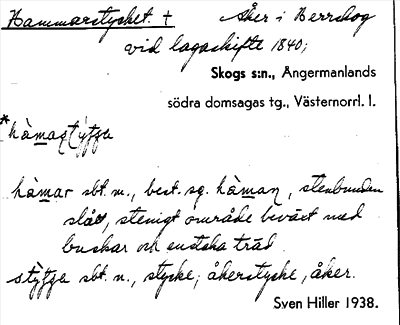 Hammarstycket. † Åker i Herrskog
vid lagaskifte 1840;
Skogs s:n., Ångermanlands
södra domsagas tg., Västernorrl. l.
hàmar sbt. m., best. sg. hàman, stenbunden
slått, stenigt område beväxt med
buskar och enstaka träd.
sbt. n., stycke; åkerstycke, åker.
Sven Hiller 1938.